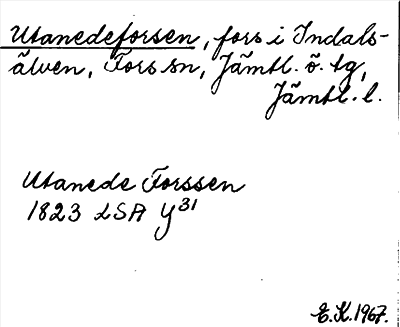 Utanedeforsen, fors i Indals-
älven, Fors sn, Jämtl. ö. tg,
Jämtl. l.
Utanede Forssen
1823 LSA Y31
E.K.1967.